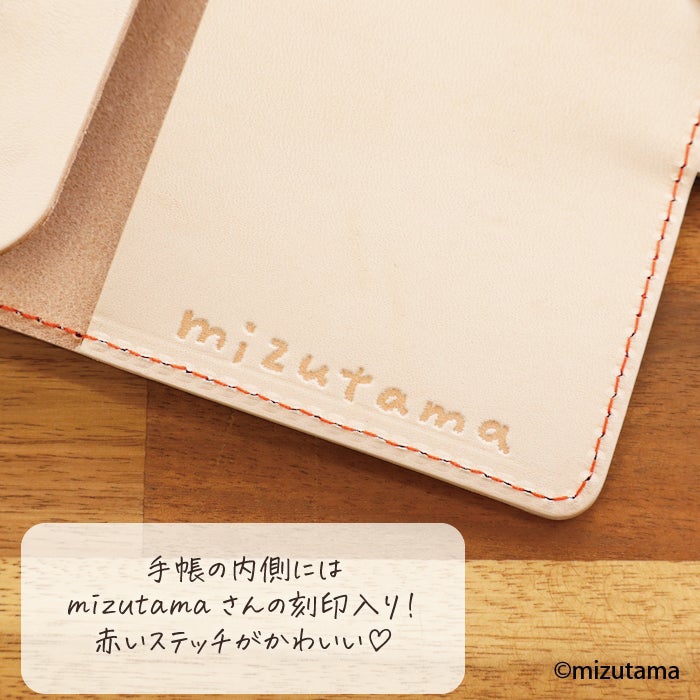 mizutama
手帳の内側には
mizutama さんの刻印入り！
赤いステッチがかわいい♡
©mizutama